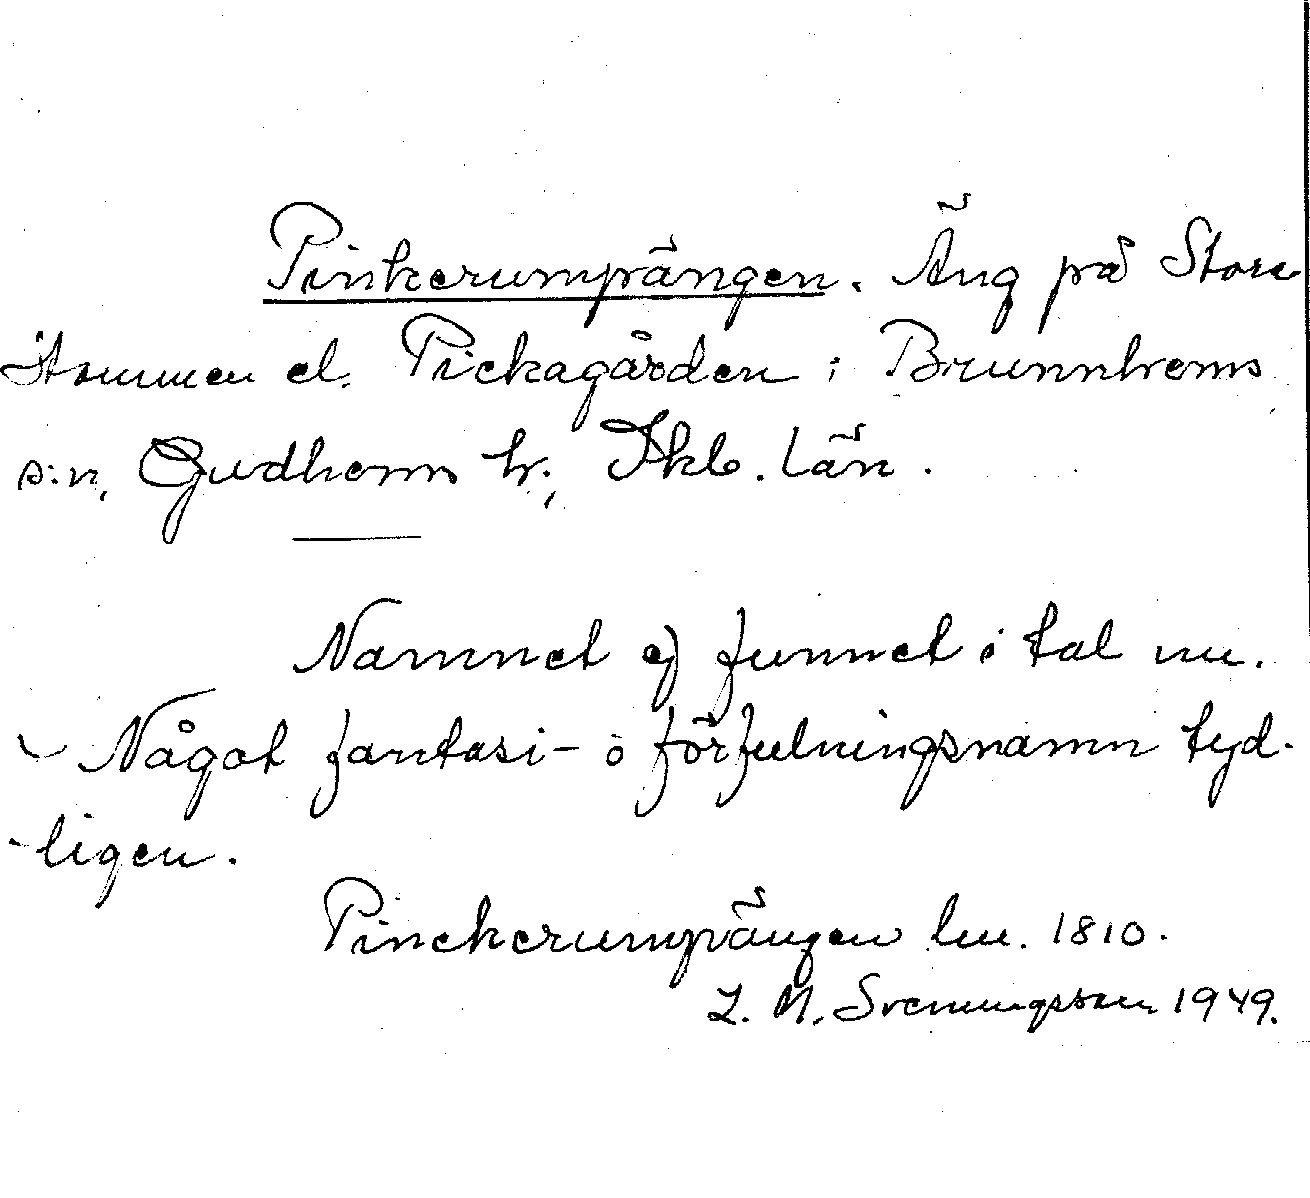 Pinkerumpängen. Äng på Stora
Stommen el. Pickagården i Brunnhems
s:n, Gudhems h:, Skb. län.
Namnet ej funnet i tal nu.
Något fantasi- o förfulningsnamn tyd-
ligen.
Pinckerumpängen lm. 1810.
L. M. Svenungsson 1949.